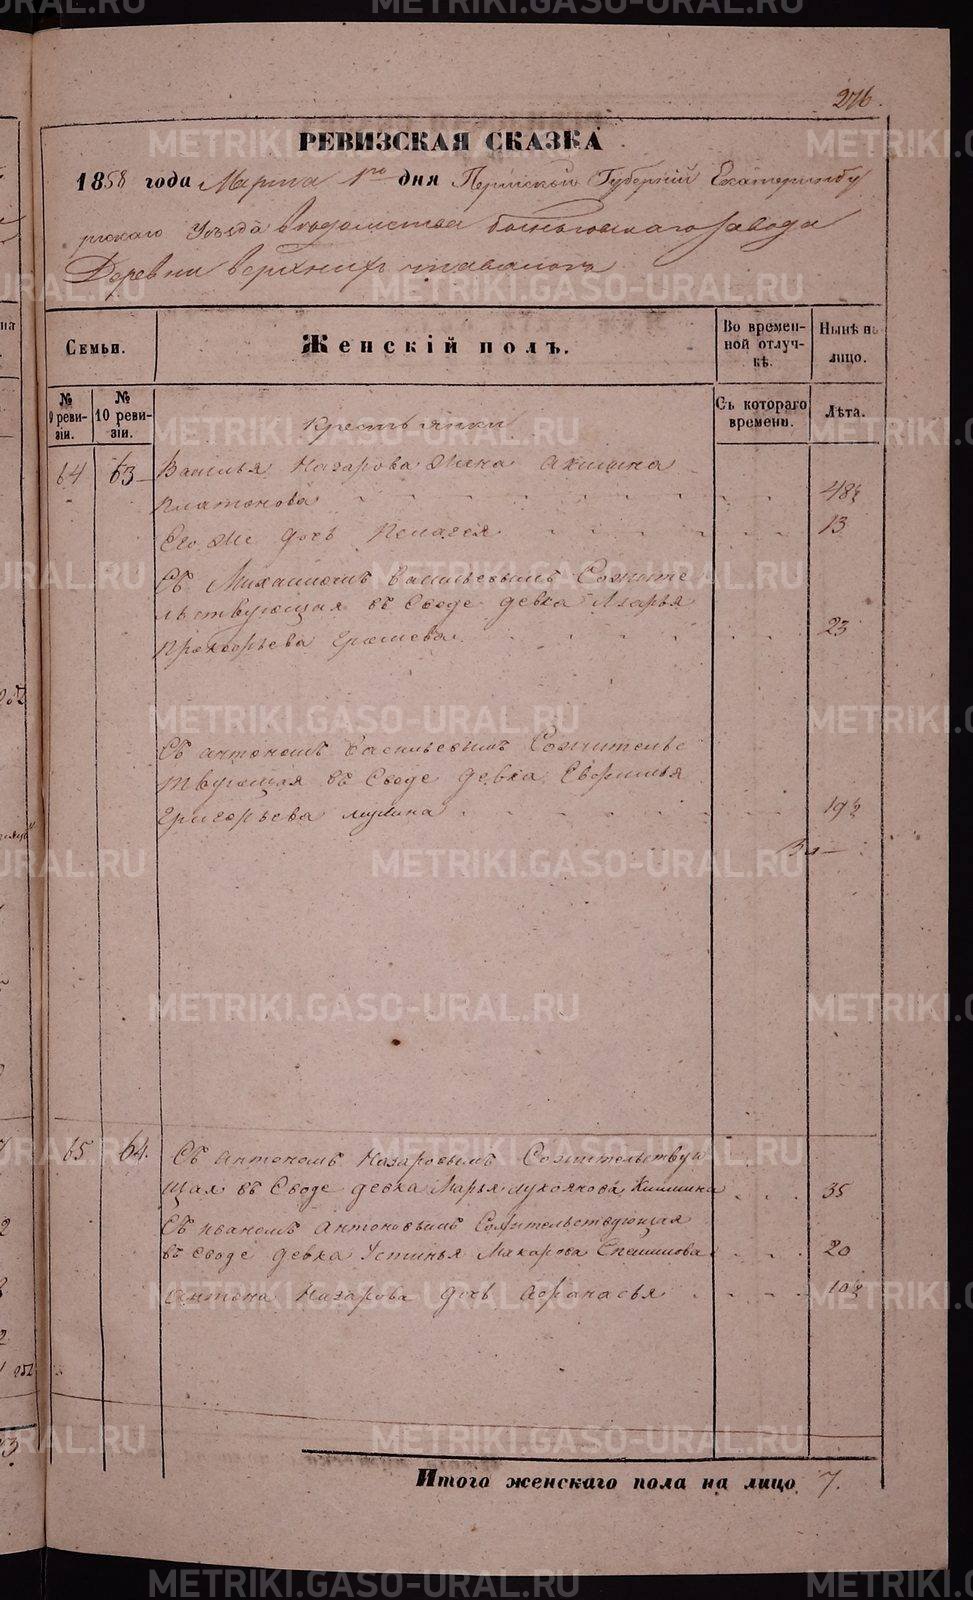 276.
РЕВИЗСКАЯ СКАЗКА
1858 года Марта 1го дня Пермской Губернiй Екатеринбу
ргскаго Уезда Ведомства завода
Деревни Верхнихъ
Семьи.
Женскiй полъ.
Во времен-
ной отлуч-
кѣ.
Нынѣ на
лицо.
№
9 реви-
зiи.
№
10 реви-
зiи.
Съ котораго
времени.
Лѣта.
Крестьянки
64 63 Василья Назарова Жена Акилина
Платонова 48½
Его Же дочь Пелагея 13
Съ Михаиломъ Васильевымъ Сожите
льствующая въ Своде девка Марья
Прокофьева 23
Съ Антономъ Васильевымъ Сожительс
твующая въ Своде девка
Григорьева 19½
65 64. Съ Антономъ Назаровымъ Сожительствую
щая въ Своде девка Марья Лукоянова 35
Съ Иваномъ Антоновымъ Сожительствующая
въ Своде девка Устинья Макарова 20
Антона Назарова дочь Афанасья 10½
Итого женскаго пола на лицо 7.
METRIKI.GASO-URAL.RU